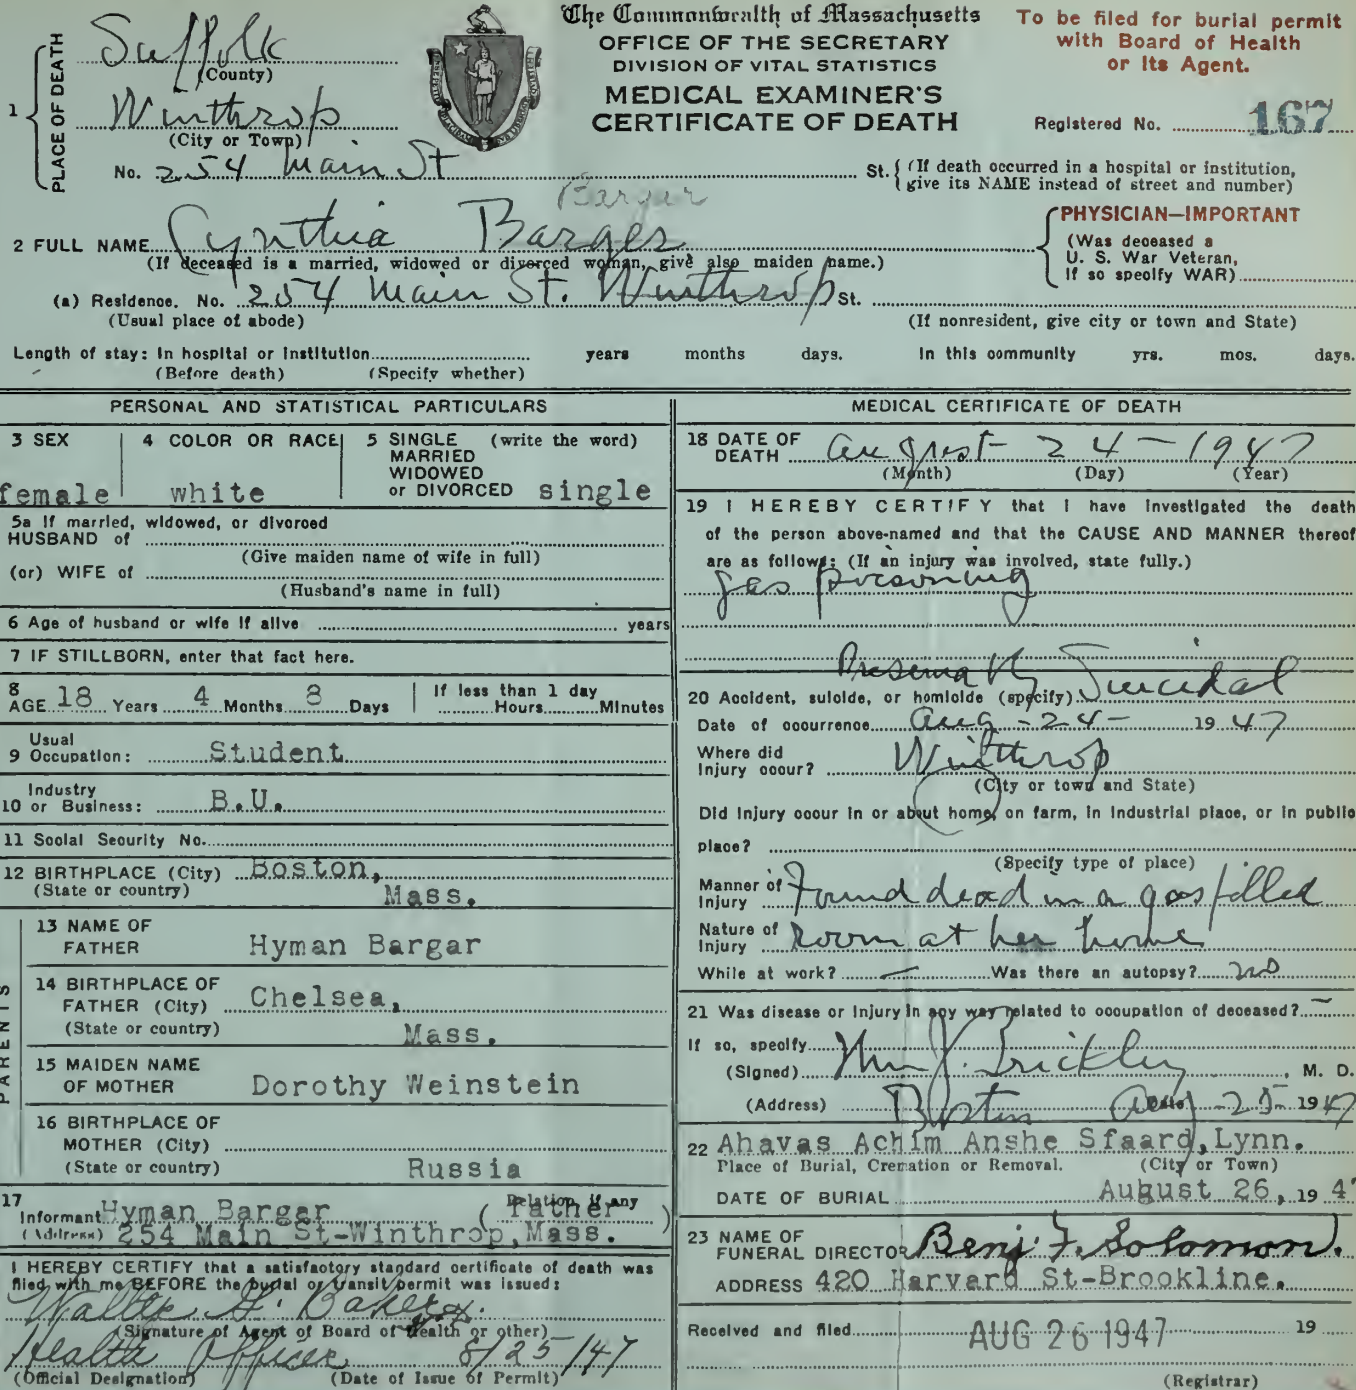 The Commonwealth of Massachusetts
OFFICE OF THE SECRETARY
DIVISION OF VITAL STATISTICS
MEDICAL EXAMINER'S
CERTIFICATE OF DEATH
To be filed for burial permit
with Board of Health
or its Agent.
Registered No. 167
1 PLACE OF DEATH
Suffolk
(County)
Winthrop
(City or Town)
No. 254 Main St St. { (If death occurred in a hospital or institution,
give its NAME instead of street and number)
Bargar
2 FULL NAME Cynthia Barger
(If deceased is a married, widowed or divorced woman, give also maiden name.)
PHYSICIAN—IMPORTANT
(Was deceased a
U. S. War Veteran,
if so specify WAR)
(a) Residence. No. 254 Main St. Winthrop St.
(Usual place of abode) (If nonresident, give city or town and State)
Length of stay: In hospital or institution years months days. In this community yrs. mos. days.
(Before death) (Specify whether)
PERSONAL AND STATISTICAL PARTICULARS
3 SEX 4 COLOR OR RACE 5 SINGLE (write the word)
MARRIED
WIDOWED
or DIVORCED single
female white
5a If married, widowed, or divorced
HUSBAND of
(Give maiden name of wife in full)
(or) WIFE of
(Husband's name in full)
6 Age of husband or wife if alive years
7 IF STILLBORN, enter that fact here.
8 AGE 18 Years 4 Months 8 Days If less than 1 day
Hours Minutes
9 Usual
Occupation: Student
10 Industry
or Business: B.U.
11 Social Security No.
12 BIRTHPLACE (City) Boston,
(State or country) Mass.
PARENTS
13 NAME OF
FATHER Hyman Bargar
14 BIRTHPLACE OF
FATHER (City) Chelsea,
(State or country) Mass.
15 MAIDEN NAME
OF MOTHER Dorothy Weinstein
16 BIRTHPLACE OF
MOTHER (City)
(State or country) Russia
17 Informant Hyman Bargar (Relation, if any Father)
(Address) 254 Main St-Winthrop, Mass.
I HEREBY CERTIFY that a satisfactory standard certificate of death was
filed with me BEFORE the burial or transit permit was issued:
Walter G. Baker
(Signature of Agent of Board of Health or other)
Health Officer 8/25/47
(Official Designation) (Date of Issue of Permit)
MEDICAL CERTIFICATE OF DEATH
18 DATE OF
DEATH August 24 - 1947
(Month) (Day) (Year)
19 I HEREBY CERTIFY that I have investigated the death
of the person above-named and that the CAUSE AND MANNER thereof
are as follows: (If an injury was involved, state fully.)
gas poisoning
Presumably
20 Accident, suicide, or homicide (specify) Suicidal
Date of occurrence Aug - 24 - 19 47
Where did
Injury occur? Winthrop
(City or town and State)
Did injury occur in or about home, on farm, in industrial place, or in public
place?
(Specify type of place)
Manner of
Injury Found dead in a gas filled
Nature of
Injury room at her home
While at work? — Was there an autopsy? no
21 Was disease or injury in any way related to occupation of deceased? —
If so, specify
(Signed) Wm J. Brickley, M. D.
(Address) Boston Date Aug - 25 - 1947
22 Ahavas Achim Anshe Sfaard, Lynn.
Place of Burial, Cremation or Removal. (City or Town)
DATE OF BURIAL August 26, 19 4
23 NAME OF
FUNERAL DIRECTOR Benj. F. Solomon.
ADDRESS 420 Harvard St-Brookline.
Received and filed AUG 26 1947 19
(Registrar)